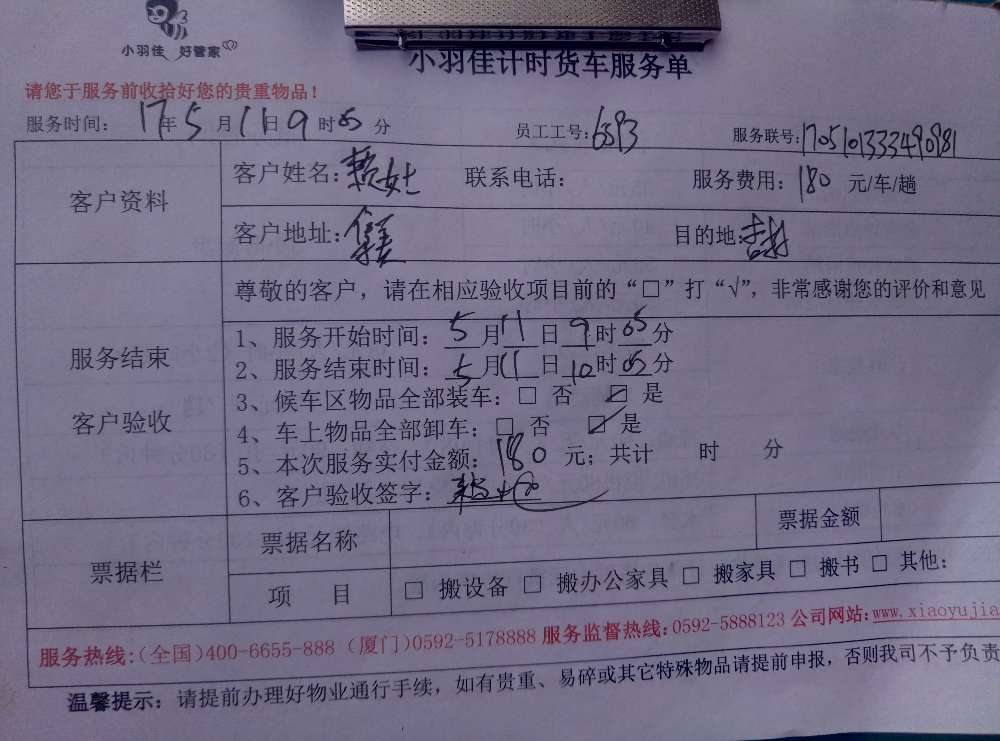 小羽佳 好管家
小羽佳计时货车服务单
请您于服务前收拾好您的贵重物品！
服务时间： 17年5月11日9时05分 员工工号：6593 服务联号：1705101333490981
客户资料
客户姓名：赖女士 联系电话： 服务费用：180 元/车/趟
客户地址：集美 目的地：杏林
尊敬的客户，请在相应验收项目前的“□”打“√”，非常感谢您的评价和意见
服务结束
客户验收
1、服务开始时间：5月11日9时05分
2、服务结束时间：5月11日10时05分
3、候车区物品全部装车：□ 否 ☑ 是
4、车上物品全部卸车：□ 否 ☑ 是
5、本次服务实付金额：180 元；共计 时 分
6、客户验收签字：
票据栏
票据名称 票据金额
项 目 □ 搬设备 □ 搬办公家具 □ 搬家具 □ 搬书 □ 其他：
服务热线：(全国)400-6655-888 (厦门)0592-5178888 服务监督热线：0592-5888123 公司网站：www.xiaoyujia
温馨提示：请提前办理好物业通行手续，如有贵重、易碎或其它特殊物品请提前申报，否则我司不予负责